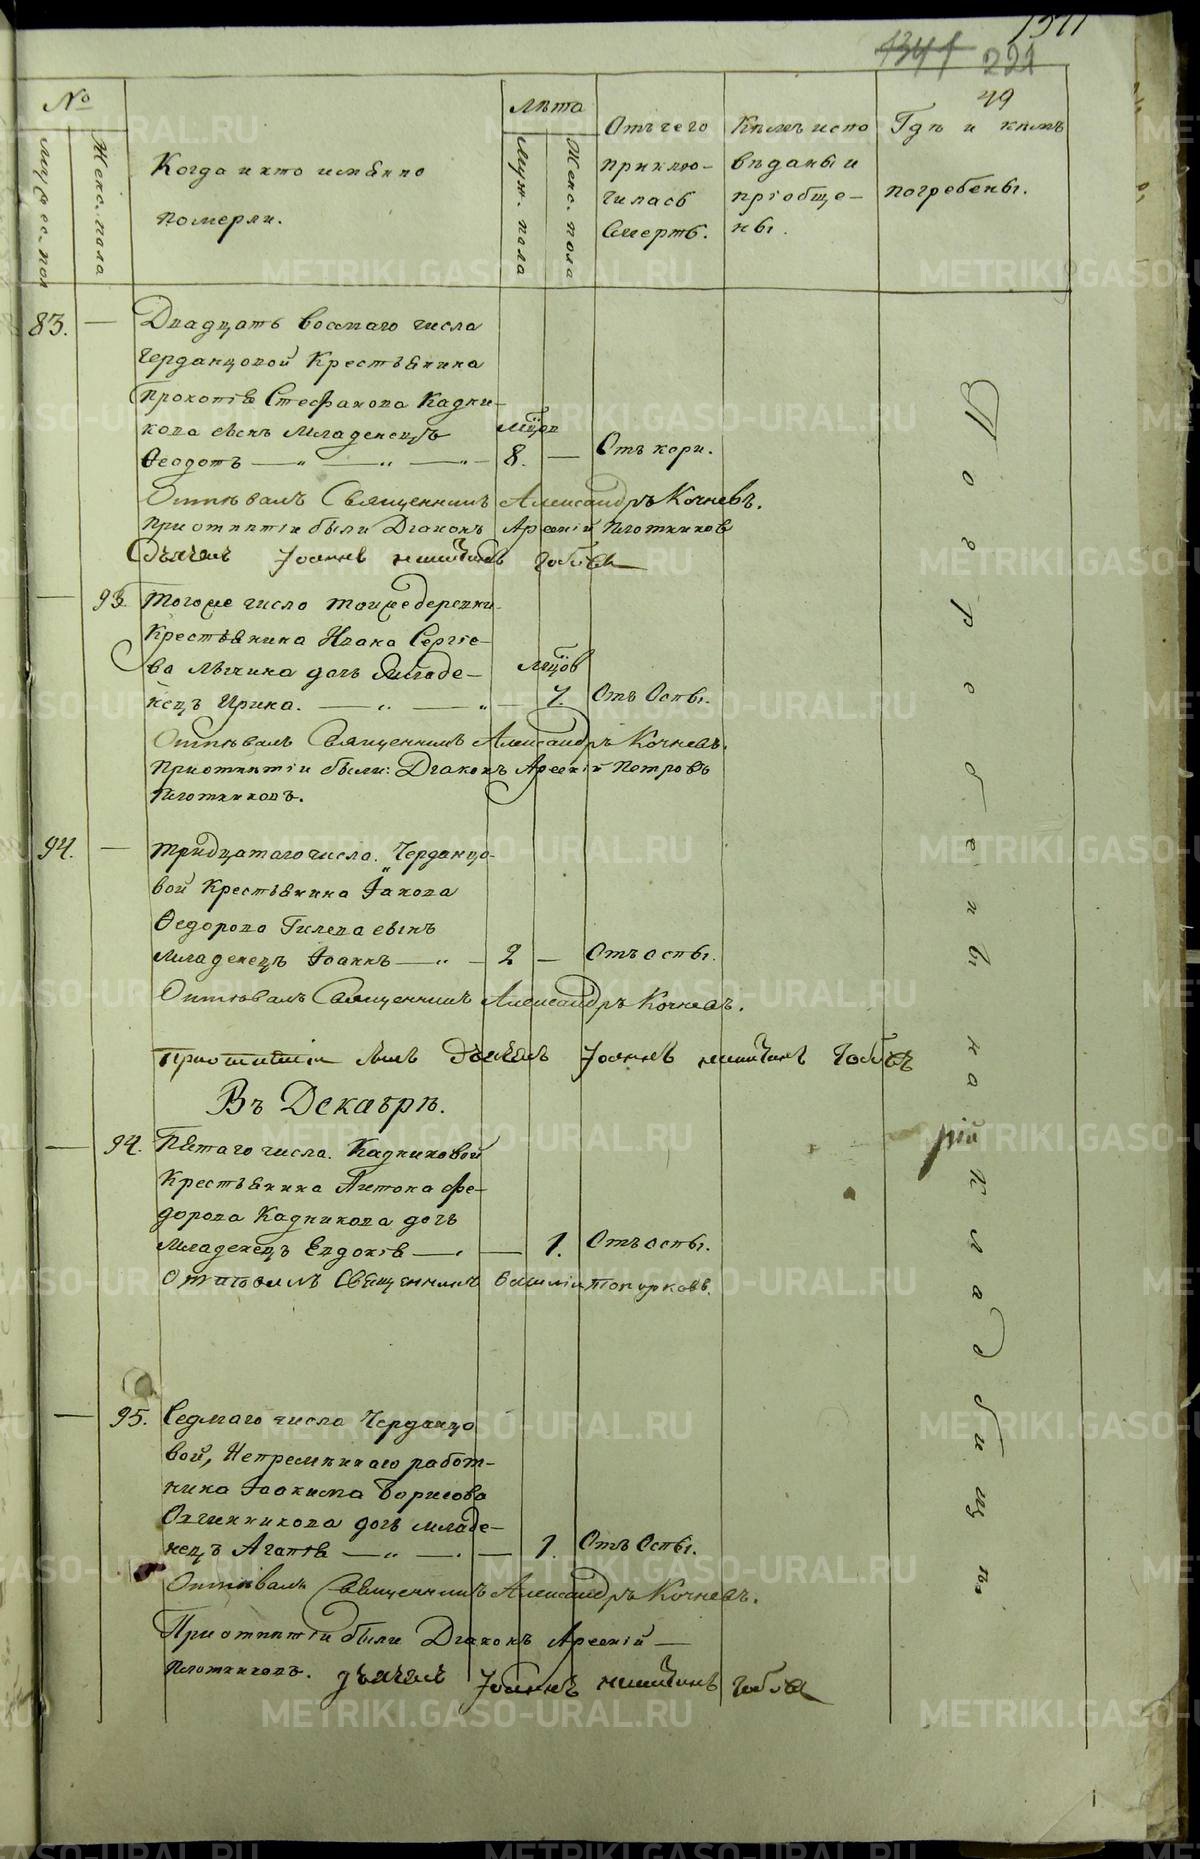 1341 221
49
№
Мужеск. пол
Женс. пола
Когда и кто именно
померли.
Лѣта
Муж. пола
Женс. пола
Отъ чего
приклю-
чилась
Смерть.
Кѣмъ испо
вѣданы и
пріобще-
ны.
Гдѣ и кѣмъ
погребены.
83. — Двадцать восмаго числа
Черданцовой Крестьянина
Прокопія Стефанова Кадни-
кова сынъ Младенецъ
Ѳеодотъ 8. — Отъ кори.
Отпѣвалъ Священникъ Александръ Кочневъ.
При отпѣтіи были Діаконъ Арсеній Плотников
Дьячекъ Іоаннъ
— 93. Тогоже число тоижедеревни
Крестьянина Ивана Сергіе-
ва дочь Младе-
нецъ Ирина. 7. Отъ Оспы.
Отпѣвалъ Священникъ Александръ Кочневъ.
При отпѣтіи были: Діаконъ Арсеній Петровъ
Плотниковъ.
94. — тридцатаго числа. Черданцо-
вой Крестьянина Іакова
Ѳедорова Гилева сынъ
Младенецъ Іоаннъ 2 — Отъ оспы.
Отпѣвалъ Священникъ Александръ Кочневъ.
При отпѣтіи былъ Дьячекъ Іоаннъ
Въ Декабрѣ.
— 94. Пятаго числа. Кадниковой
Крестьянина Антона Фе-
дорова Кадникова дочь
Младенецъ Евдокія 1. Отъ оспы.
Отпѣвалъ Священникъ Топорковъ.
— 95. Седмаго числа Черданцо
вой, Непремѣннаго работ-
ника Іоакима Борисова
Овчинникова дочь младе-
нецъ Агапія 1. Отъ Оспы.
Отпѣвалъ Священникъ Александръ Кочневъ.
При отпѣтіи были Діаконъ Арсеній
Плотниковъ. Дьячекъ Іоаннъ
Погребены на
Кладбищѣ